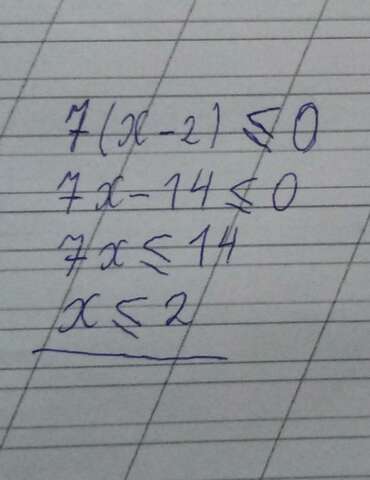 7(x-2) ≤ 0
7x - 14 ≤ 0
7x ≤ 14
x ≤ 2